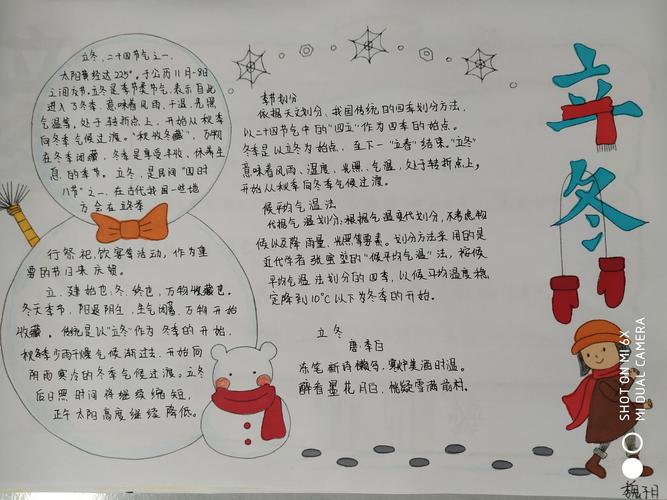 立冬
立冬，二十四节气之一，
太阳黄经达225°。于公历11月7-8日
之间交节。立冬是季节类节气，表示自此
进入了冬季。意味着风雨、干湿、光照、
气温等，处于转折点上，开始从秋季
向冬季气候过渡。“秋收冬藏”，万物
在冬季闭藏，冬季是享受丰收、休养生
息的季节。立冬，是民间“四时
八节”之一，在古代我国一些地
方会在立冬举
行祭祀、饮宴等活动，作为重
要的节日来庆贺。
立，建始也；冬，终也，万物收藏也。
冬天季节，阳退阴生，生气闭蓄，万物开始
收藏。传统是以“立冬”作为冬季的开始，
秋季少雨干燥气候渐过去，开始向
阴雨寒冷的冬季气候过渡。立冬
后日照时间将继续缩短，
正午太阳高度继续降低。
季节划分
依据天文划分，我国传统的四季划分方法，
以二十四节气中的“四立”作为四季的始点。
冬季是以立冬为始点，在下一“立春”结束。“立冬”
意味着风雨、湿度、光照、气温，处于转折点上，
开始从秋季向冬季气候过渡。
候平均气温法
气温划分：根据气温变化划分，不考虑物
候以及降雨量、光照等要素。划分方法采用的是
近代学者张宝堃的“候平均气温”法，按候
平均气温法划分的四季，以候平均温度稳
定降到10℃以下为冬季的开始。
立冬
唐·李白
冻笔新诗懒写，寒炉美酒时温。
醉看墨花月白，恍疑雪满前村。
SHOT ON MI 6X
MI DUAL CAMERA